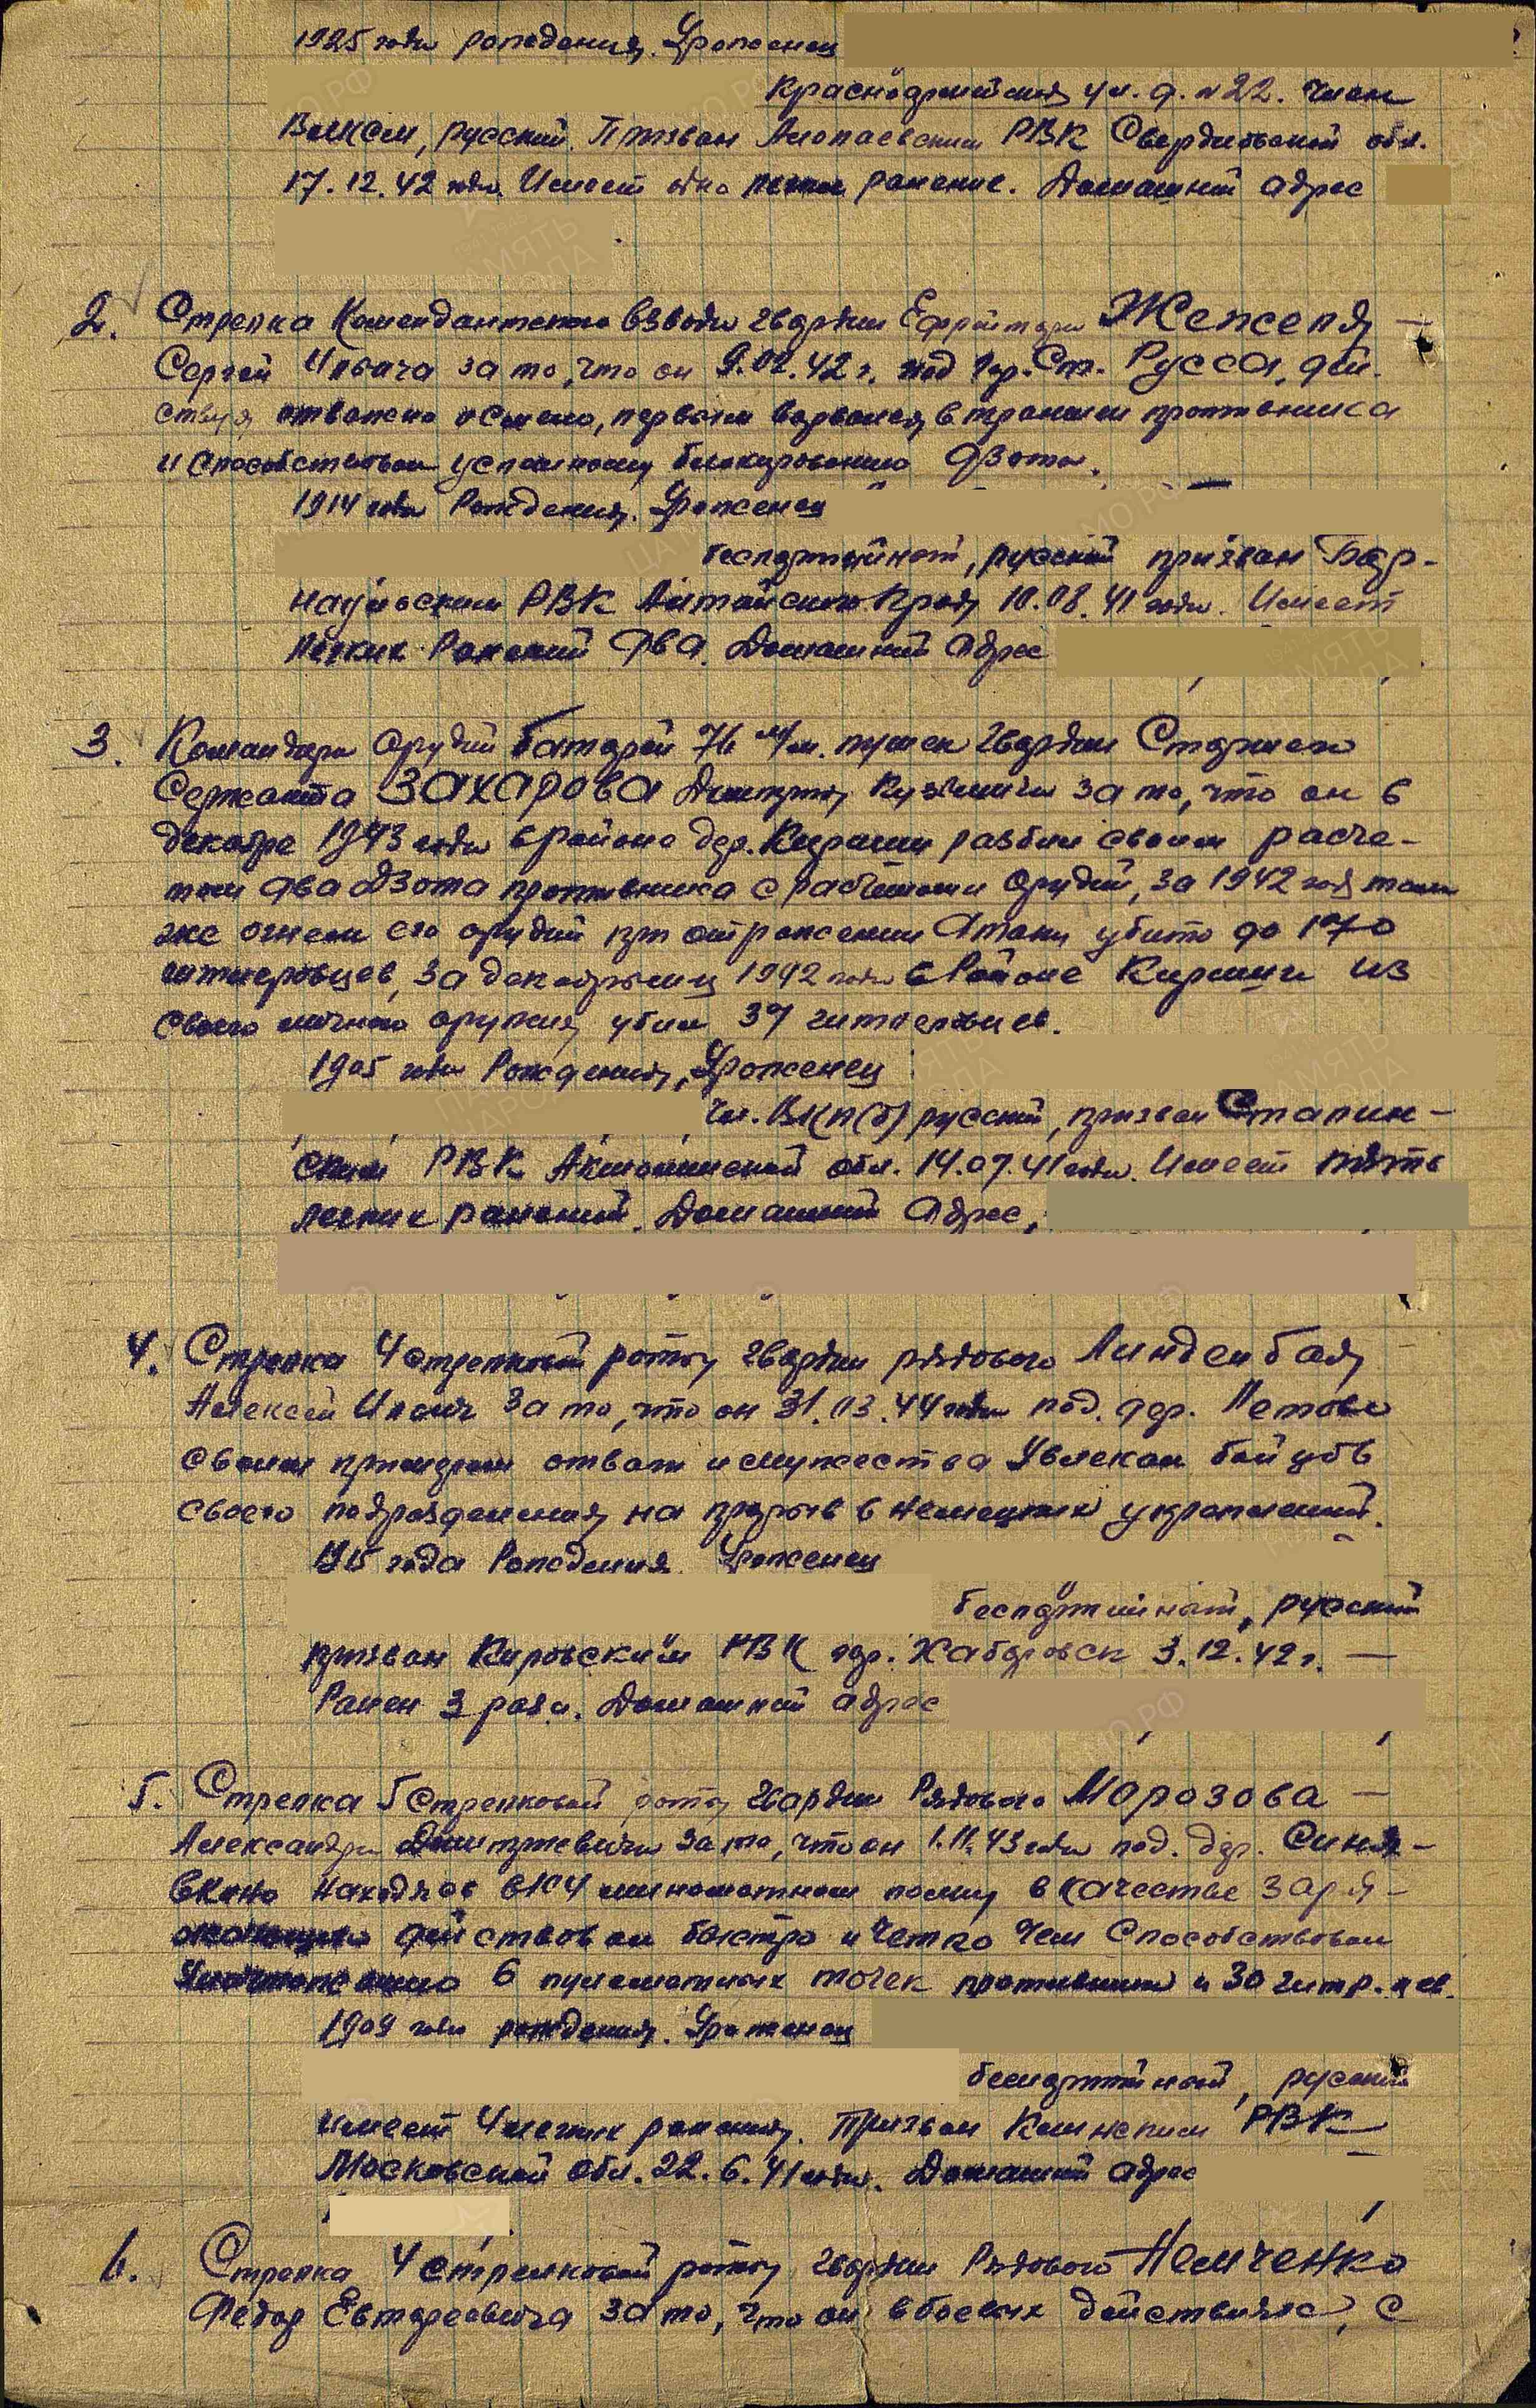 1925 года рождения. Уроженец
Красноармейская ул. д. №22. Член
ВЛКСМ, русский. Призван Алопаевским РВК Свердловской обл.
17.12.42 года. Имеет одно легкое ранение. Домашний адрес
2. Стрелка Комендантского взвода гвардии Ефрейтора
Сергей Ильича за то, что он 9.02.42 г. под гор. Ст. Русса, дей-
ствуя отважно и смело, первым ворвался в траншеи противника
и способствовал успешному блокированию Дзота.
1914 года Рождения. Уроженец
беспартийный, русский призван Бар-
наульским РВК Алтайского Края 10.08.41 года. Имеет
легких Ранений два. Домашний Адрес
3. Командира Орудий батарей 76 м/м. пушек гвардии Старшего
Сержанта Захарова Дмитрия Кузьмича за то, что он в
декабре 1943 года в районе дер. Кириши разбил своим расче-
том два Дзота противника с расчетами Орудий, за 1942 год также
же огнем его орудий при отражении Атаки убито до 170
гитлеровцев, за декабрь м-ц 1942 года в Районе Кириши из
своего личного оружия убил 37 гитлеровцев.
1905 года Рождения, Уроженец
Чл. ВКП(б) русский, призван Сталин-
ским РВК Акмолинской обл. 14.07.41 года. Имеет пять
легких ранений. Домашний Адрес,
4. Стрелка 4 стрелковой роты гвардии рядового Линденбая
Алексей Ильич за то, что он 31.03.44 года под. дер.
своим примером отваги и мужества Увлекал бойцов
своего подразделения на прорыв в немецких укреплений.
1915 года Рождения. Уроженец
беспартийный, русский
призван Кировским РВК гор. Хабаровск 3.12.42 г. —
Ранен 3 раза. Домашний адрес
5. Стрелка 5 стрелковой роты гвардии Рядового Морозова —
Александра Дмитриевича за то, что он 1.11.43 года под. дер. Синя-
вконо находясь в 104 минометном полку в качестве заря-
жающего действовал быстро и четко чем Способствовал
Уничтожению 6 пулеметных точек противника и 30 гитл.цев.
1909 года рождения. Уроженец
беспартийный, русский
имеет 4 легких ранения. Призван Клинским РВК
Московской обл. 22.6.41 года. Домашний адрес
6. Стрелка 4 стрелковой роты гвардии Рядового Немченко
Федор Евтореевича за то, что он в боевых действиях, с